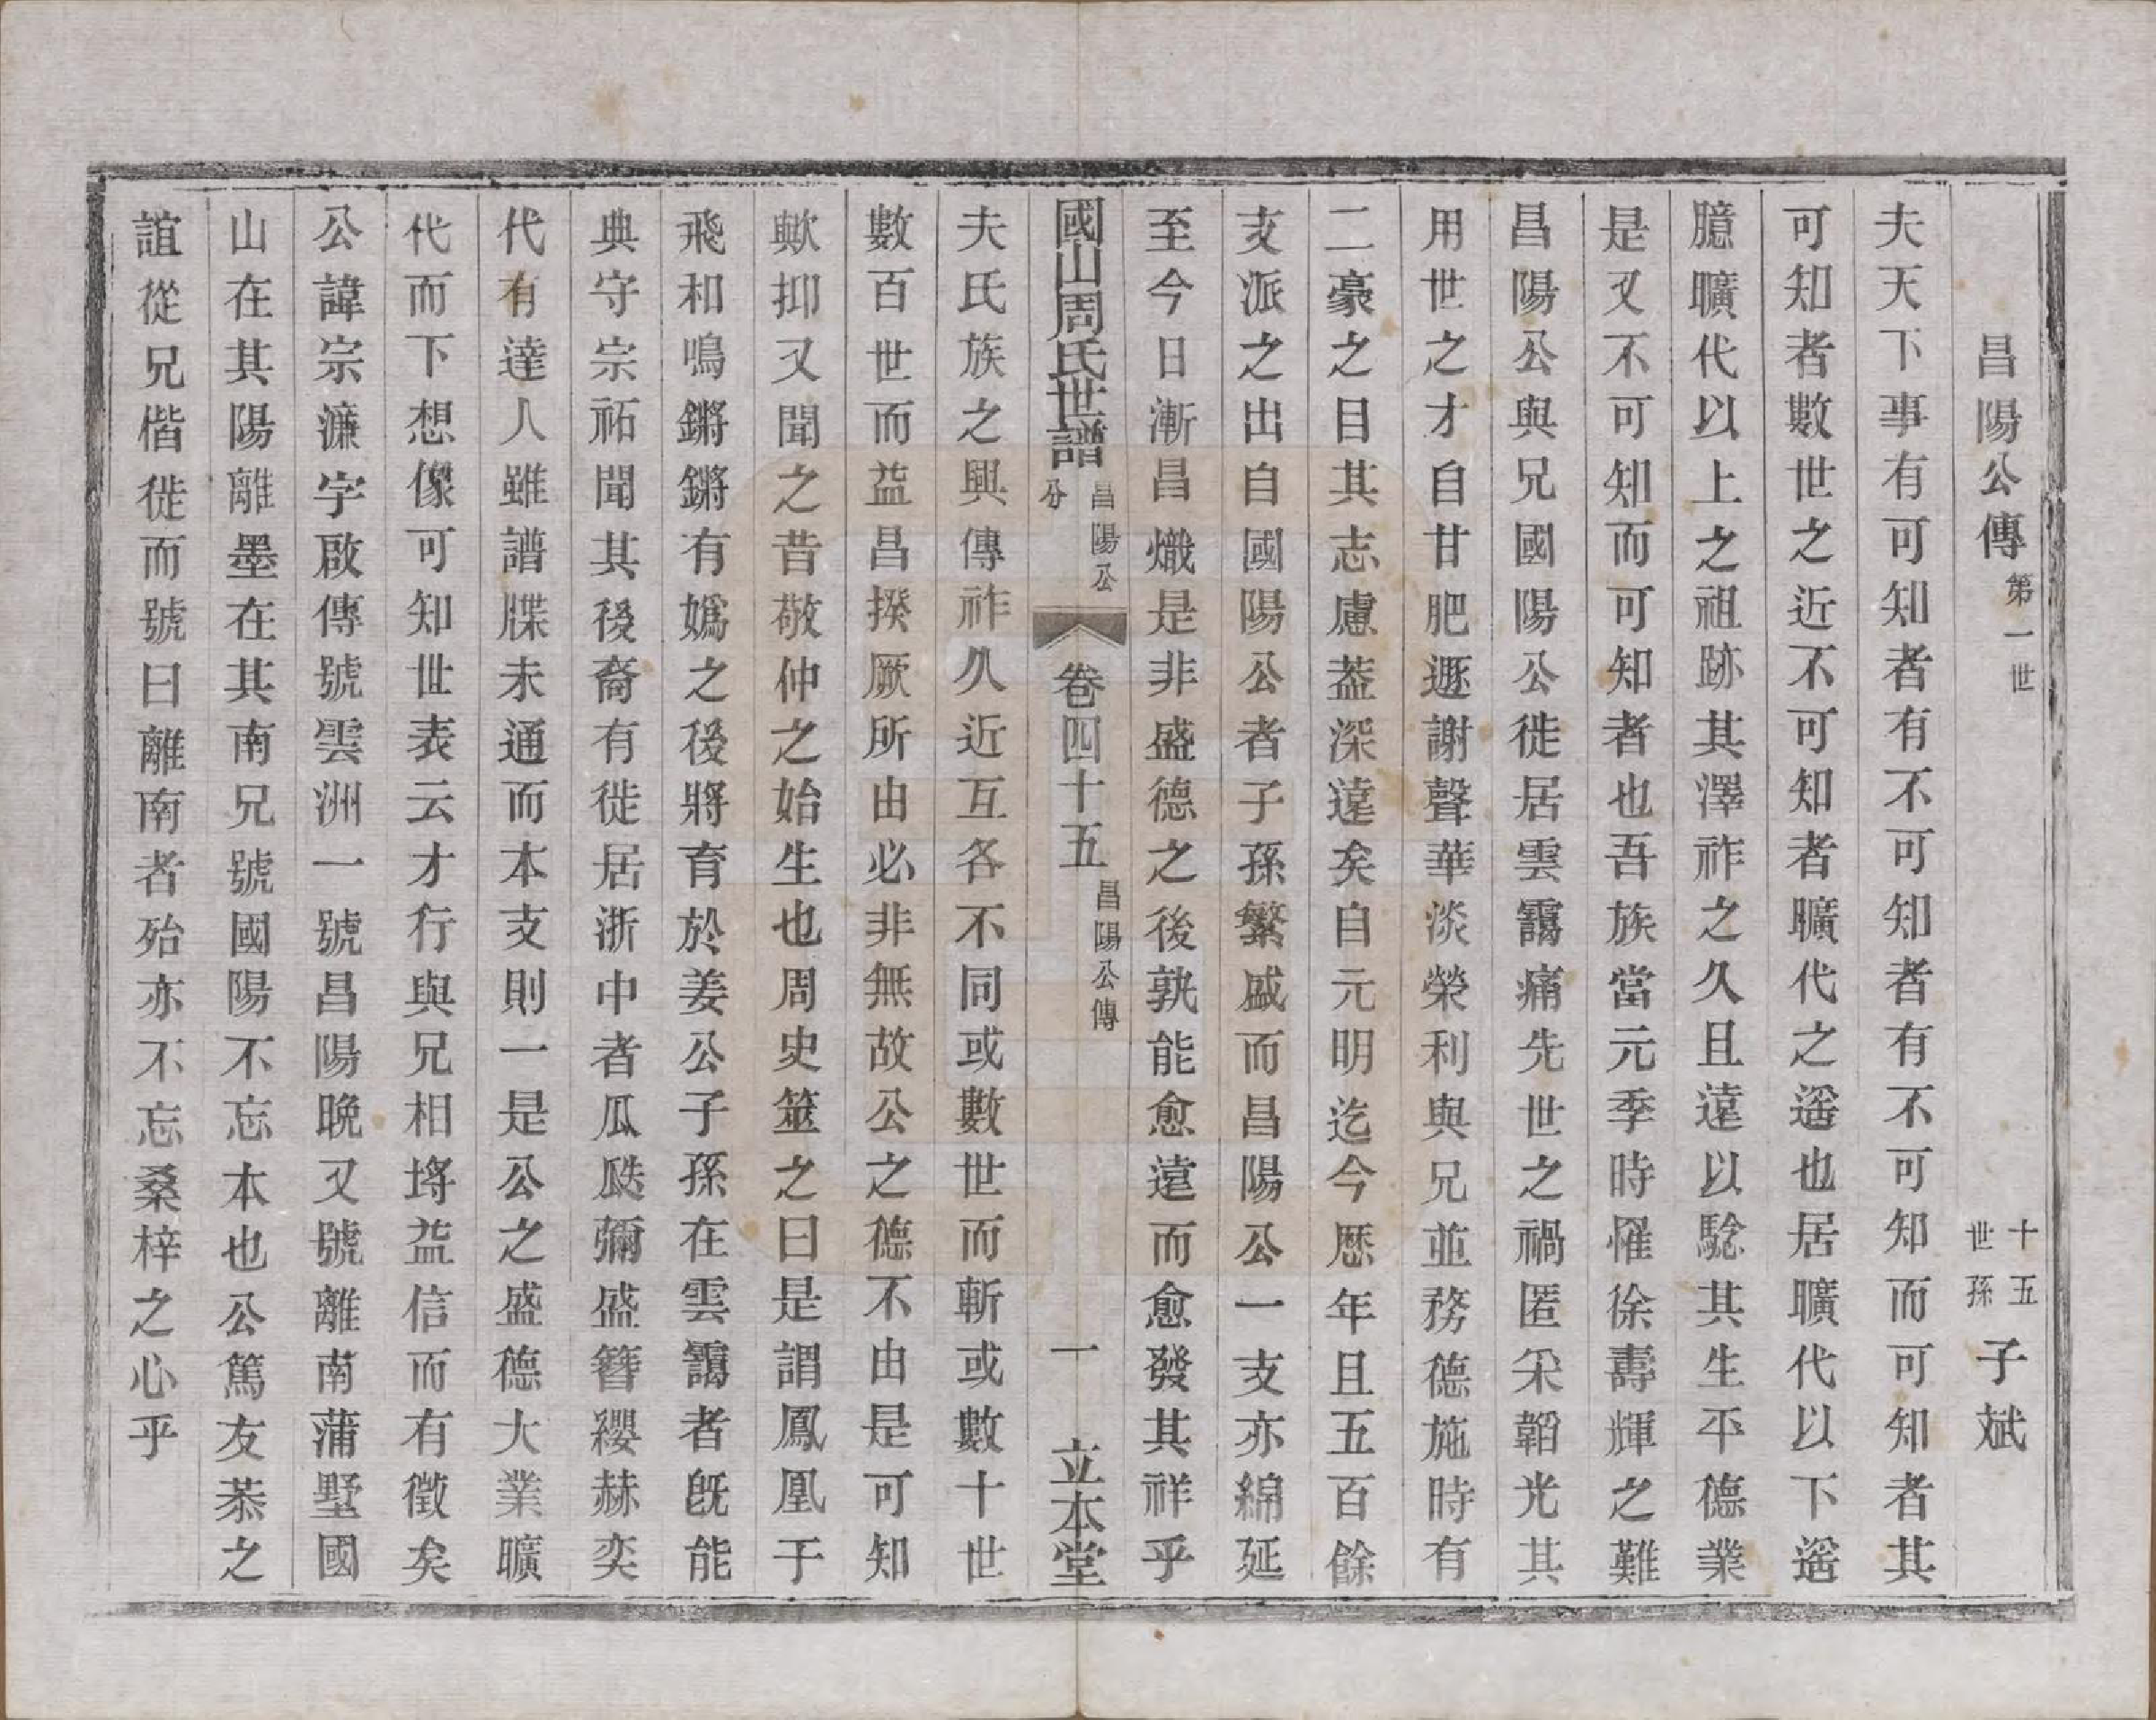 昌陽公傳 第一世 十五世孫 子斌
夫天下事有可知者有不可知者有不可知而可知者其
可知者數世之近不可知者曠代之遥也居曠代以下遥
臆曠代以上之祖跡其澤祚之久且遠以騐其生平德業
是又不可知而可知者也吾族當元季時罹徐壽輝之難
昌陽公與兄國陽公徙居雲靄痛先世之禍匿采韜光其
用世之才自甘肥遯謝聲華淡榮利與兄並務德施時有
二豪之目其志慮葢深遠矣自元明迄今歷年且五百餘
支派之出自國陽公者子孫繁盛而昌陽公一支亦綿延
至今日漸昌熾是非盛德之後孰能愈遠而愈發其祥乎
國山周氏世譜 昌陽公分 卷四十五 昌陽公傳 一 立本堂
夫氏族之興傳祚久近互各不同或數世而斬或數十世
數百世而益昌揆厥所由必非無故公之德不由是可知
歟抑又聞之昔敬仲之始生也周史筮之曰是謂鳳凰于
飛和鳴鏘鏘有嬀之後將育於姜公子孫在雲靄者旣能
典守宗祏聞其後裔有徙居浙中者瓜瓞彌盛簪纓赫奕
代有達人雖譜牒未通而本支則一是公之盛德大業曠
代而下想像可知世表云才行與兄相埓益信而有徵矣
公諱宗濂字啟傳號雲洲一號昌陽晚又號離南蒲墅國
山在其陽離墨在其南兄號國陽不忘本也公篤友恭之
誼從兄楷徙而號曰離南者殆亦不忘桑梓之心乎